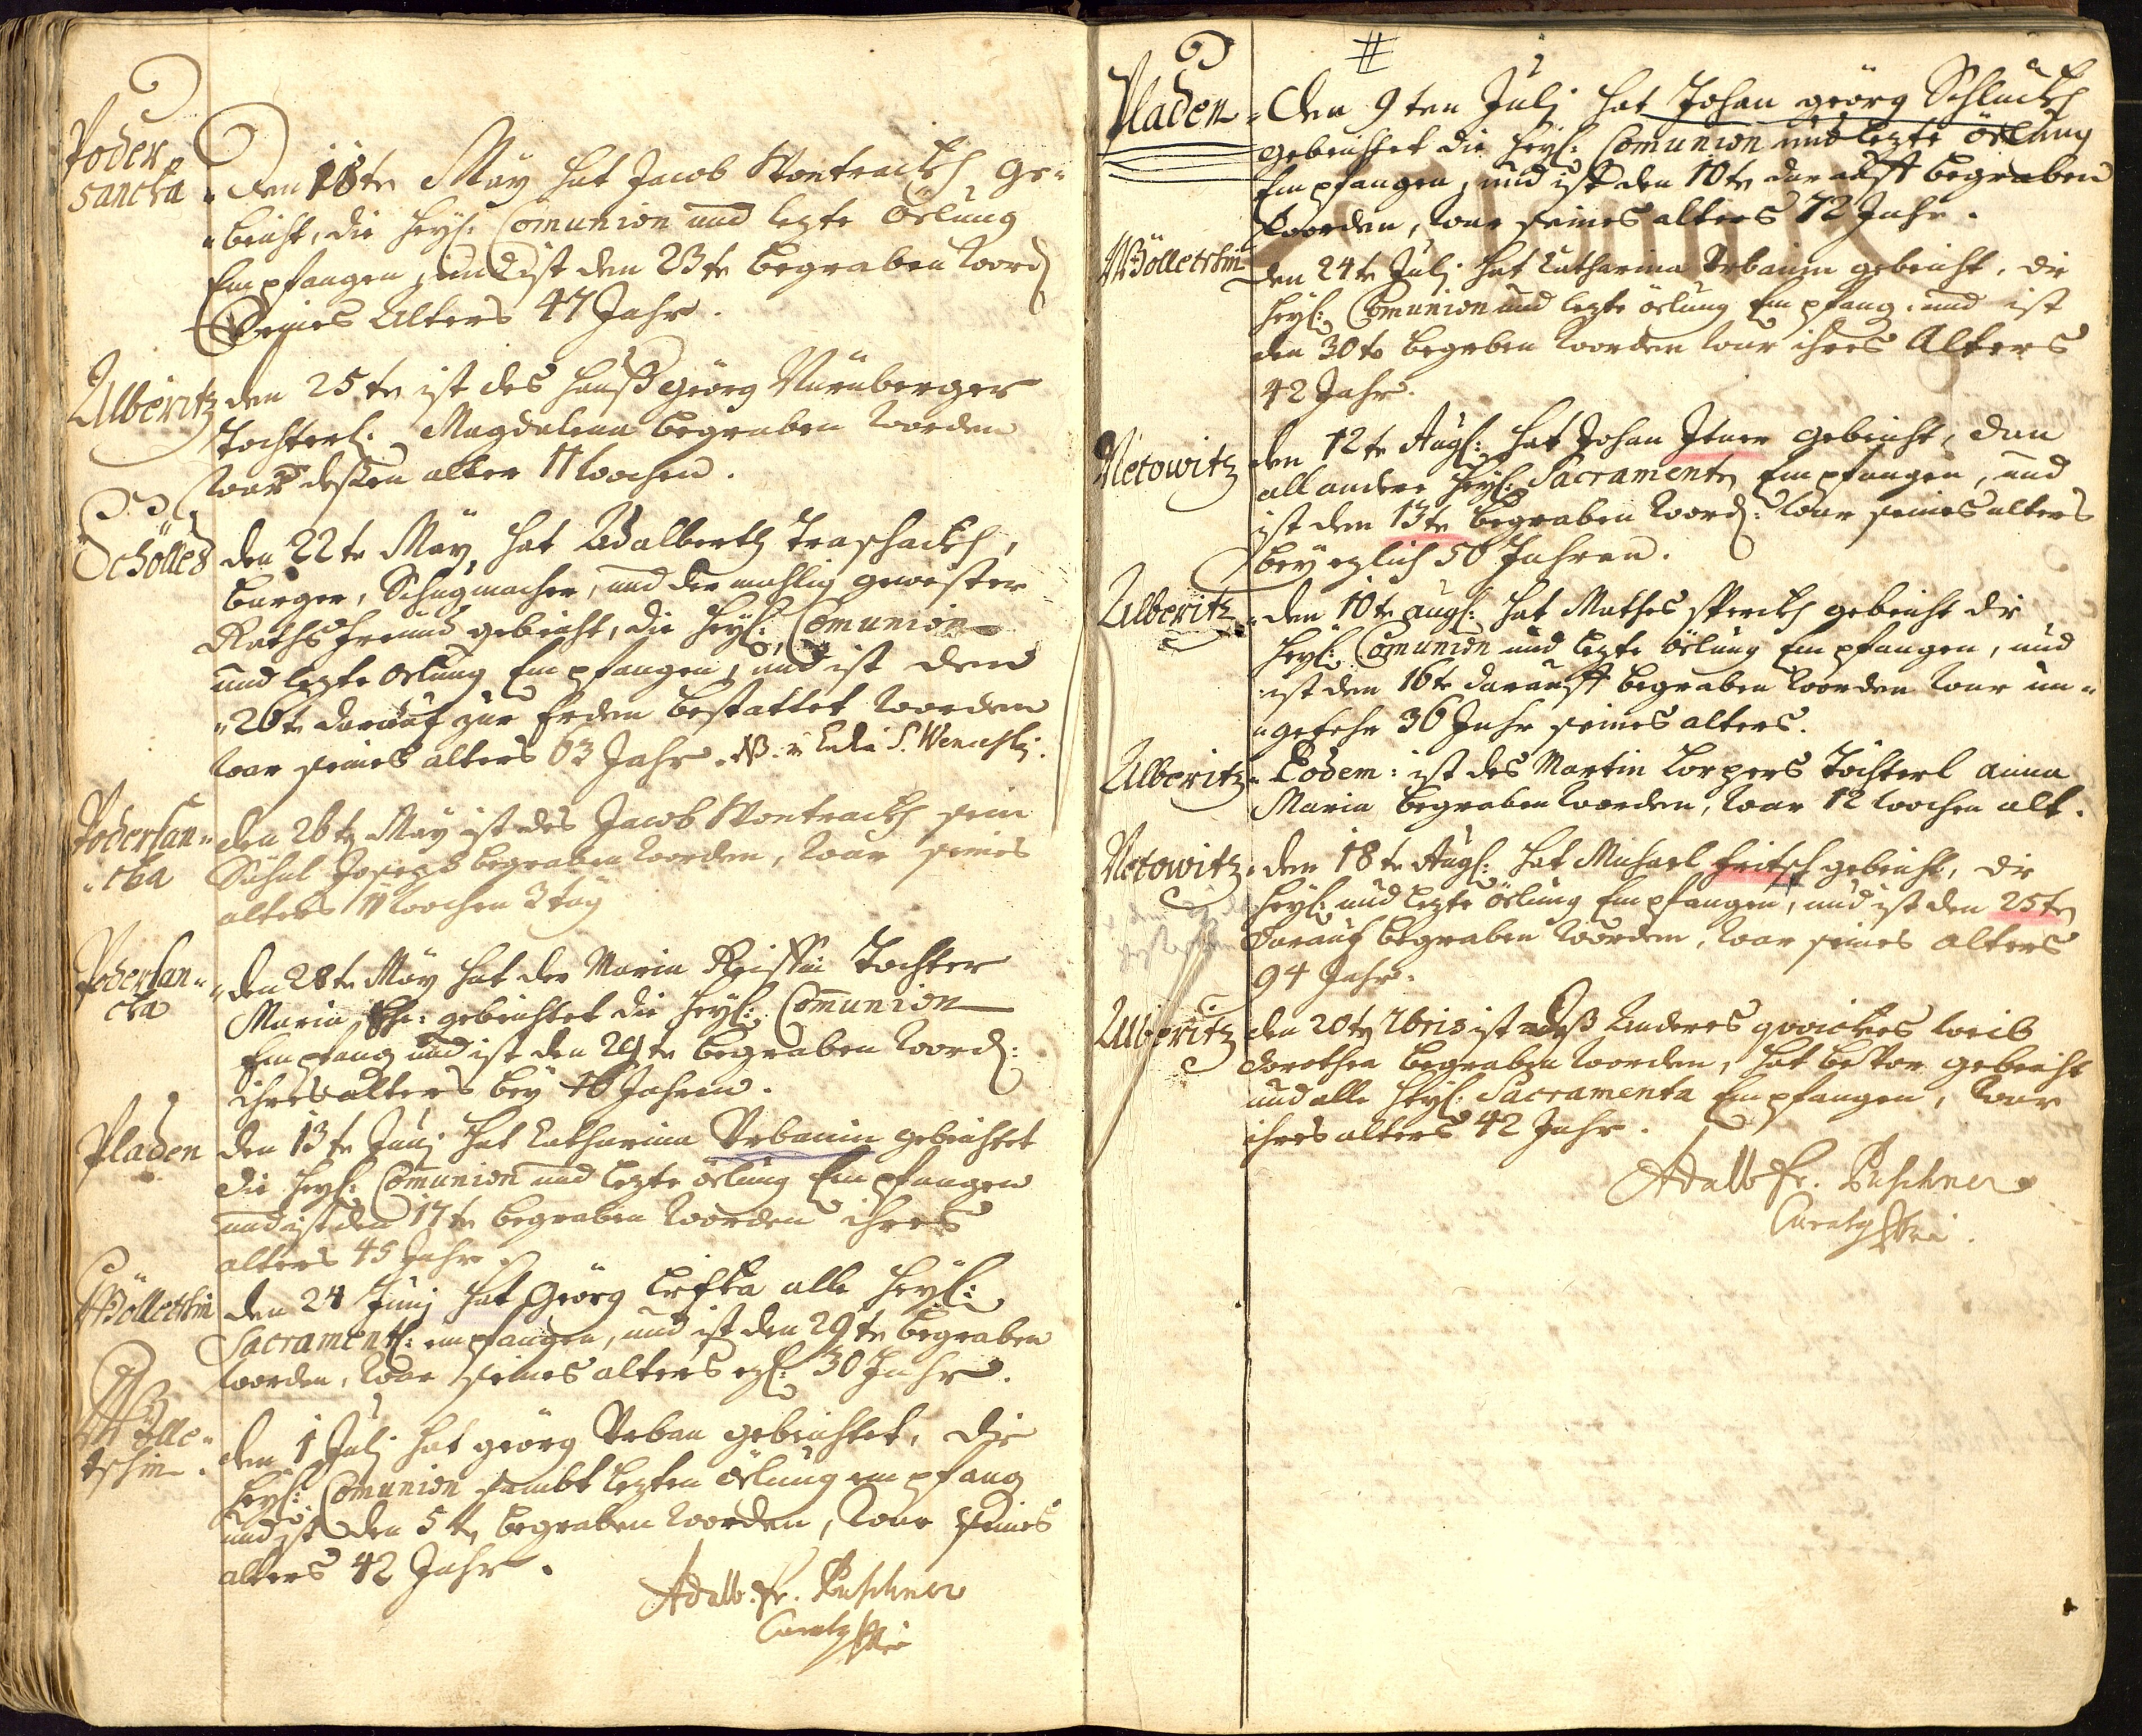 Poder
sancka
Den 18te May hat Jacob Wontrackh ge=
beicht, die heyl: Comunion und lezte öelung
Empfangen, und ist den 23te begraben word
Seines Alters 47 Jahr.
Alberitz
den 25te ist des Hanß Georg Nürnberger
Tochterl: Magdalena begraben worden
war deßen alter 11 wochen.
Schölles
den 22te May hat Adalberth Traschackh,
burger, Schugmacher, und der mahlig gewester
Raths freund gebeicht, die heyl: Comunion
und lezte oelung Empfangen, und ist den
26te darauf zur Erden bestattet worden
war seines alters 63 Jahr. NB.
Podersan=
cka
den 26te May ist des Jacob Wontrackh sein
Söhnl Joseph begraben worden, war seines
alters 11 wochen 3 tag
Podersan=
cka
den 28te May hat der Maria Tochter
Maria gebeichtet die heyl: Comunion
Empfang und ist den 29te begraben word:
ihres alters bey 40 Jahren.
Pladen
den 13te Junj hat Catharina Urbanin gebeichtet
die heyl: Comunion und lezte öelung Empfangen
und ist den 17te begraben worden ihres
alters 45 Jahr.
Wölletschin
den 24 Junj hat Georg Lesska alle heyl:
Sacrament: empfangen, und ist den 29te begraben
worden, war seines alters ezl: 30 Jahr.
Wölle=
tschin
den 1 Julj hat georg Urban gebeichtet, die
heyl: Comunion sambt lezten öelung empfang
und ist den 5te begraben worden, war seines
alters 42 Jahr.
Adalb. Fr. Puschner
#
Pladen
Den 9ten Julj hat Johan georg Schluckh
gebeichtet die heyl: Comunion und lezte öelung
Empfangen, und ist den 10te darauff begraben
worden, war seines alters 72 Jahr.
Wölletschin
den 24te Julj hat Catharina Urbanin gebeicht, die
heyl: Comunion und lezte öelung Empfang: und ist
den 30te begraben worden war ihres Alters
42 Jahr.
Netowitz
den 12te Augl: hat Johan Itner gebeicht, dan
all andere heyl: Sacramente Empfangen, und
ist den 13te begraben word: war seines alters
bey ezlich 50 Jahren.
Alberitz
den 10te augl: hat Mathes sperckh gebeicht die
heyl: Comunion und lezte öelung Empfangen, und
ist den 16te darauff begraben worden war un=
gefehr 36 Jahr seines alters.
Alberitz
Eodem: ist des Martin Corpers Töchterl anna
Maria begraben worden, war 12 wochen alt.
Netowitz
den 18te Augl: hat Michael Fritsch gebeicht, die
heyl: und lezte öelung Empfangen, und ist den 25te
darauf begraben worden, war seines alters
94 Jahr.
Alberitz
den 20te 7bris ist deß Anderes weib
Dorothea begraben worden, hat bevor gebeicht
und alle heyl: Sacramenta Empfangen, war
ihres alters 42 Jahr.
Adalb. Fr. Puschner